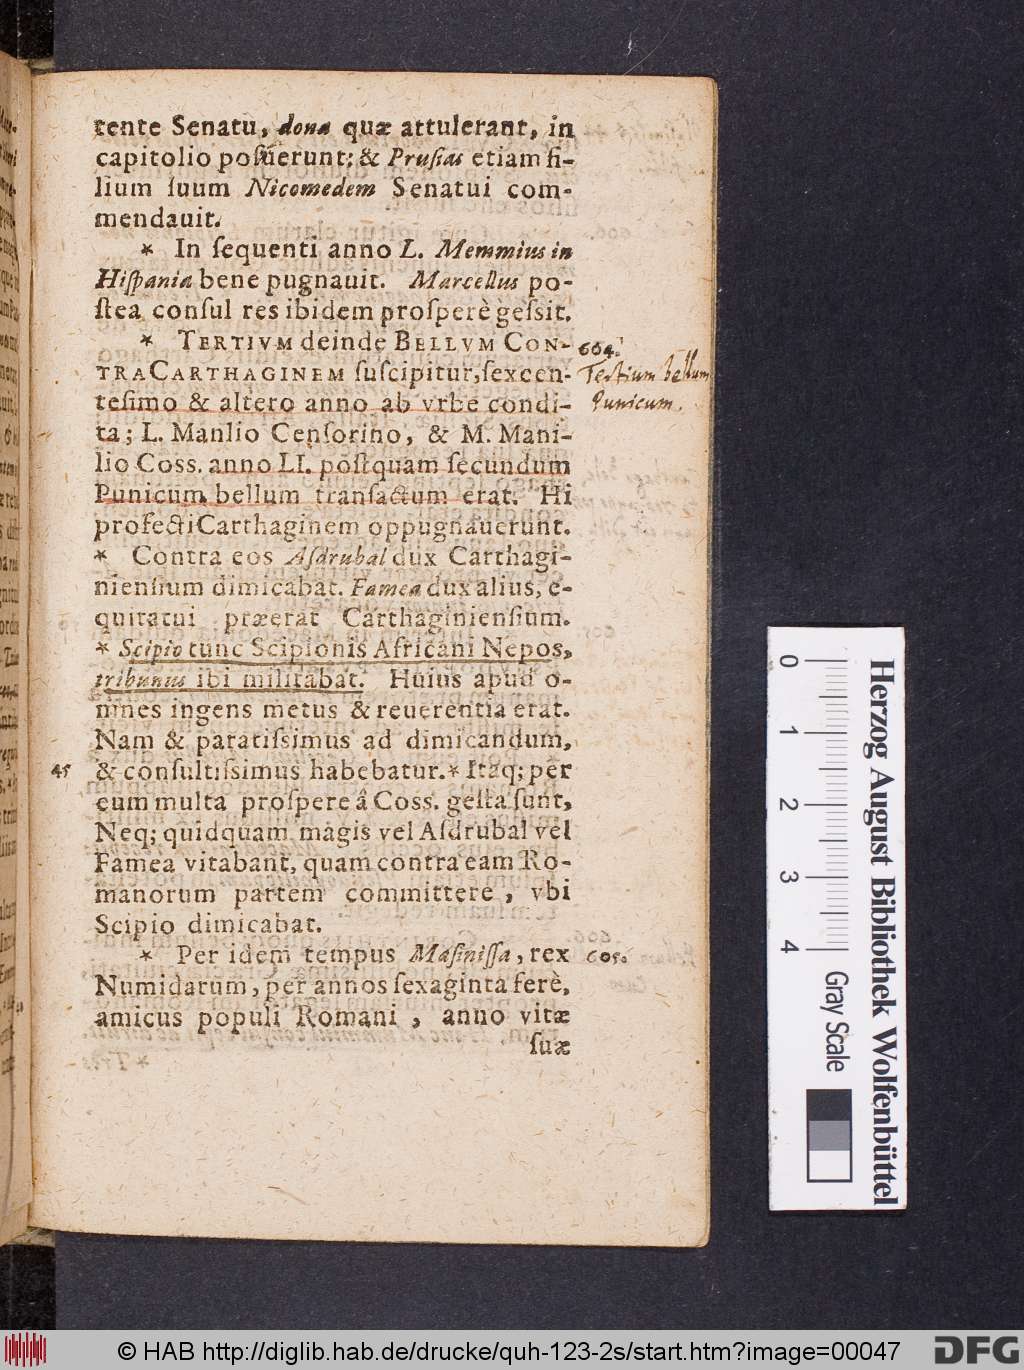 tente Senatu, dona quæ attulerant, in
capitolio posuerunt: & Prusias etiam fi-
lium suum Nicomedem Senatui com-
mendauit.
* In sequenti anno L. Memmius in
Hispania bene pugnauit. Marcellus po-
stea consul res ibidem prosperè gessit.
* TERTIVM deinde BELLVM CON-
TRA CARTHAGINEM suscipitur, sexcen-
tesimo & altero anno ab vrbe condi-
ta; L. Manlio Censorino, & M. Mani-
lio Coss. anno LI. postquam secundum
Punicum bellum transactum erat. Hi
profecti Carthaginem oppugnauerunt.
* Contra eos Asdrubal dux Carthagi-
niensium dimicabat. Famea dux alius, e-
quitatui præerat Carthaginiensium.
* Scipio tunc Scipionis Africani Nepos,
tribunus ibi militabat. Huius apud o-
mnes ingens metus & reuerentia erat.
Nam & paratissimus ad dimicandum,
& consultissimus habebatur. * Itaq; per
eum multa prospere â Coss. gesta sunt,
Neq; quidquam magis vel Asdrubal vel
Famea vitabant, quam contra eam Ro-
manorum partem committere, vbi
Scipio dimicabat.
* Per idem tempus Masinissa, rex
Numidarum, per annos sexaginta ferè,
amicus populi Romani, anno vitæ
suæ
604.
Tertium bellum
Punicum.
45
605.
0 1 2 3 4
Gray Scale
Herzog August Bibliothek Wolfenbüttel
© HAB http://diglib.hab.de/drucke/quh-123-2s/start.htm?image=00047
DFG